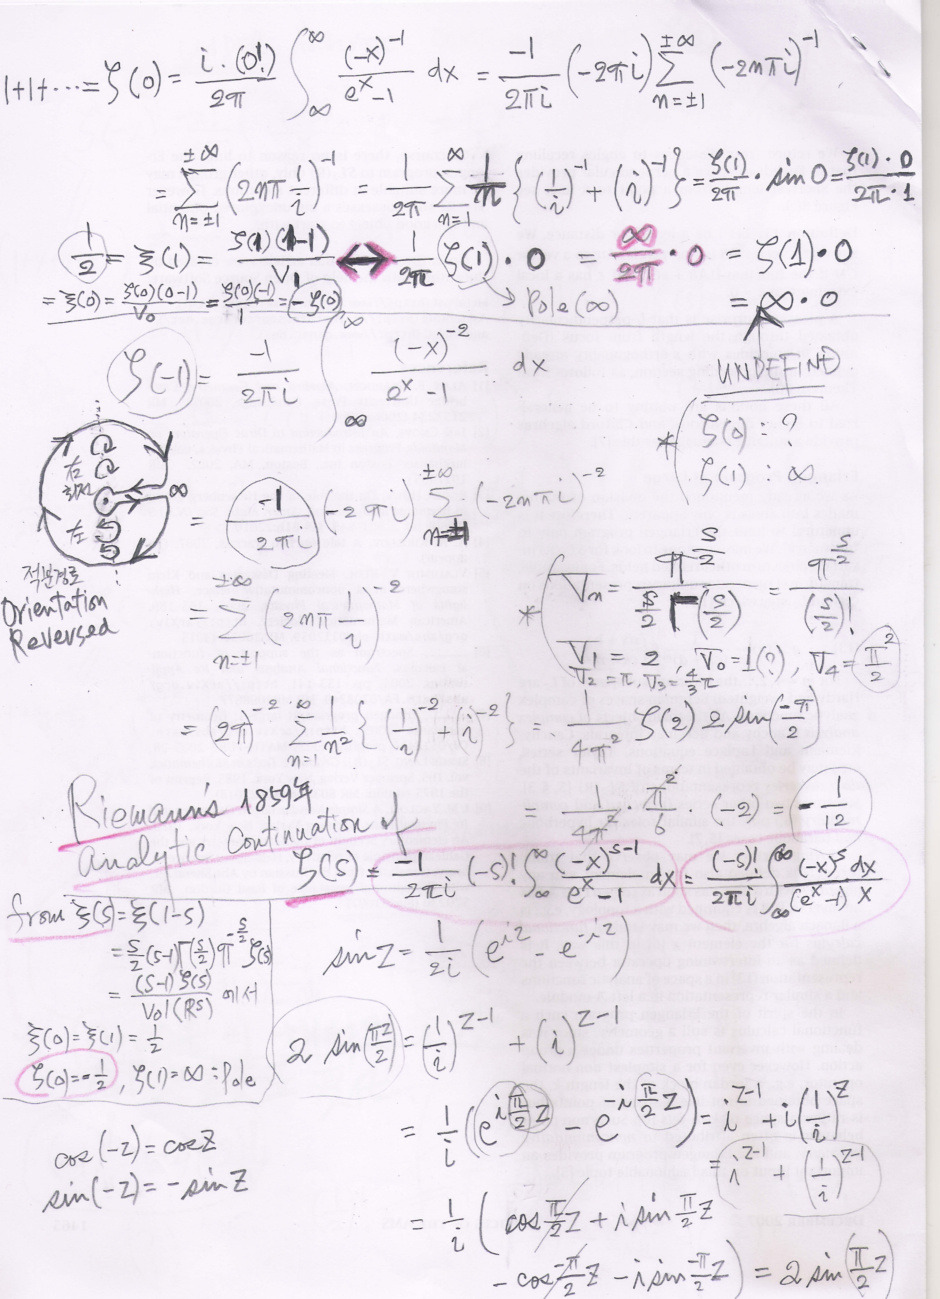 1+1+⋯ = ζ(0) = i·(0!)/2π ∫_∞^∞ (-x)^{-1}/(e^x-1) dx = -1/2πi (-2πi) Σ_{n=±1}^{±∞} (-2nπi)^{-1}
= Σ_{n=±1}^{±∞} (2nπ 1/i)^{-1} = 1/2π Σ_{n=1}^{∞} 1/n {(1/i)^{-1} + (i)^{-1}} = ζ(1)/2π · sin 0 = ζ(1)·0/2π·1
1/2 = ξ(1) = ζ(1)(1-1)/V₁ ↔ 1/2π ζ(1)·0 = ∞/2π · 0 = ζ(1)·0
= ξ(0) = ζ(0)(0-1)/V₀ = ζ(0)(-1)/1 = -ζ(0)
→ Pole(∞)
= ∞·0
UNDEFINE
ζ(-1) = -1/2πi ∫_∞^∞ (-x)^{-2}/(e^x-1) dx
* ζ(0) : ?
ζ(1) : ∞
左
회전
∞
左
적분경로
Orientation
Reversed
= -1/2πi (-2πi) Σ_{n=±1}^{±∞} (-2nπi)^{-2}
= Σ_{n=±1}^{±∞} (2nπ 1/i)^{-2}
* V_n = π^{s/2}/(s/2 Γ(s/2)) = π^{s/2}/(s/2)!
V₁ = 2, V₀ = 1(?), V₄ = π²/2
V₂ = π, V₃ = 4/3 π
= (2π)^{-2} Σ_{n=1}^{∞} 1/n² {(1/i)^{-2} + (i)^{-2}} = 1/4π² ζ(2) 2 sin(-π/2)
= 1/4π² · π²/6 (-2) = -1/12
Riemann's 1859年
Analytic Continuation of
ζ(s) = -1/2πi (-s)! ∫_∞^∞ (-x)^{s-1}/(e^x-1) dx = (-s)!/2πi ∫_∞^∞ (-x)^s dx/(e^x-1) x
from ξ(s) = ξ(1-s)
= s/2 (s-1) Γ(s/2) π^{-s/2} ζ(s)
= (s-1)ζ(s)/Vol(R^s) 에서
ξ(0) = ξ(1) = 1/2
ζ(0) = -1/2, ζ(1) = ∞ : Pole
cos(-z) = cos z
sin(-z) = -sin z
sin z = 1/2i (e^{iz} - e^{-iz})
2 sin(πz/2) = (1/i)^{z-1} + (i)^{z-1}
= 1/i (e^{i π/2 z} - e^{-i π/2 z}) = i^{z-1} + i(1/i)^z
= i^{z-1} + (1/i)^{z-1}
= 1/i (cos π/2 z + i sin π/2 z
- cos -π/2 z - i sin -π/2 z) = 2 sin(π/2 z)